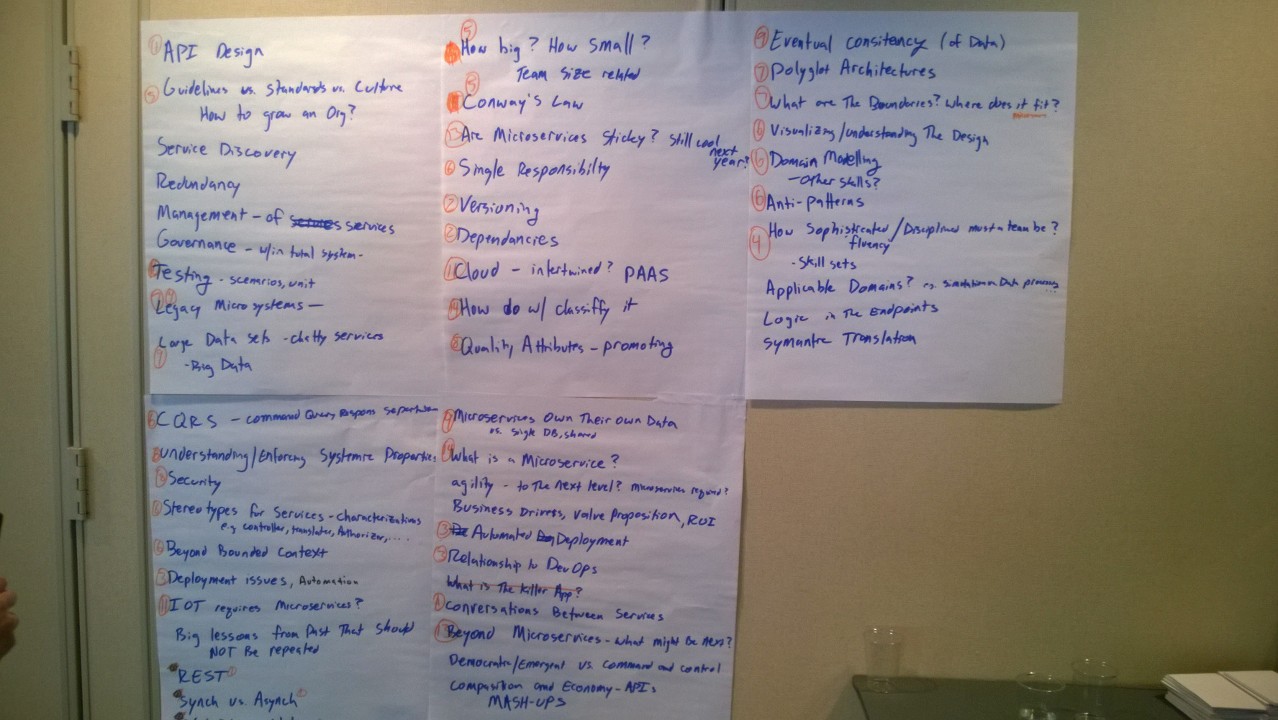 1 API Design
5 Guidelines vs. Standards vs. Culture
How to grow an Org?
Service Discovery
Redundancy
Management - of services services
Governance - w/in total system -
Testing - scenarios, unit
Legacy Microsystems -
Large Data sets - chatty services
7 - Big Data
5
How big? How small?
Team size related
5
Conway's Law
13 Are Microservices sticky? Still cool
next
year?
6 Single Responsibilty
2 Versioning
2 Dependancies
Cloud - intertwined? PAAS
How do w/ classiffy it
Quality Attributes - promoting
9 Eventual consitency (of Data)
7 Polyglot Architectures
7 What are The Boundaries? Where does it fit?
6 Visualizing/understanding The Design
6 Domain Modelling
- other skills?
6 Anti-patterns
4 How Sophisticated/Disciplined must a team be?
fluency
- skill sets
Applicable Domains? e.g. simulation Data processing ...
Logic in The Endpoints
Symantic Translation
CQRS - command Query Respons
Understanding/Enforcing Systemic Properties
Security
Stereotypes for Services - characterizations
e.g controller, translator, Authorizer, ....
6 Beyond Bounded Context
3 Deployment issues, Automation
11 IOT requires Microservices?
Big lessons from Past That should
NOT Be repeated
REST
Synch vs. Asynch
9 Microservices Own Their own Data
vs. single DB, shared
What is a Microservice?
agility - to The next level? microservices required?
Business Drivers, Value Proposition, ROI
3 Automated Deployment
3 Relationship to DevOps
What is The Killer App?
Conversations Between Services
Beyond Microservices - what might be next?
Democratic/Emergent vs. command and control
Composition and Economy - APIs
MASH-UPS